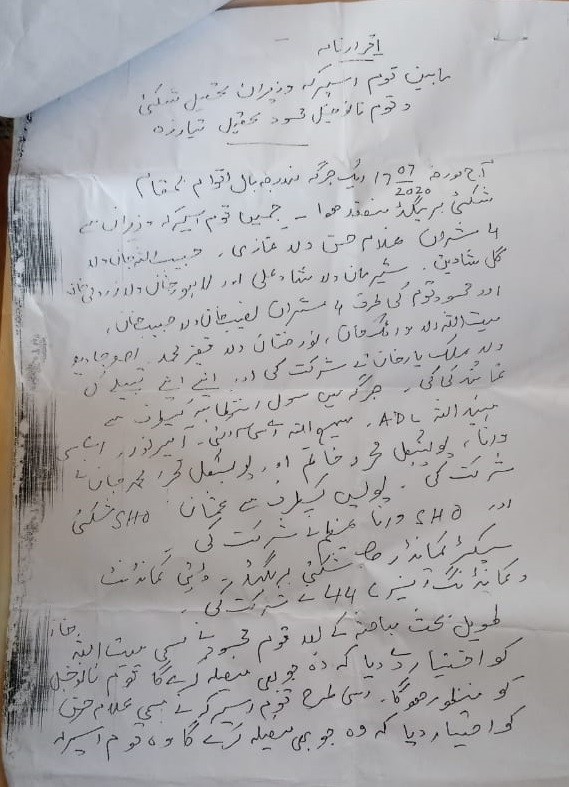 اقرار نامہ
مابین قوم اسپرکہ وزیران تحصیل شکئی
و قوم نانوخیل محسود تحصیل تیارزہ
آج مورخہ 17 07/2020 ایک جرگہ مندرجہ بالا اقوام بمقام
شکئی بریگیڈ منعقد ھوا۔ جسمیں قوم اسپرکہ وزیران سے
4 مشران غلام حق ولد غازی، حبیب اللہ جان ولد
گل شادین، شیرمان ولد شادعلی اور لاہور خان ولد
اور محسود قوم کی طرف 4 مشران نصیب خان ولد حبیب خان،
میت اللہ ولد خان، نورختان ولد فقیر محمد،
ولد ملک یارخان نے شرکت کی اور اپنے اپنے قبیلے کی
نمائندگی کی۔ جرگہ میں سول انتظامیہ کیطرف سے
اللہ ADC، سمیع اللہ اے سی
وانا، پولیٹیکل محرر خانم اور پولیٹیکل محرر محمد جان نے
شرکت کی۔ پولیس کیطرف سے عثمان SHO شکئی
اور SHO وانا نے شرکت کی
سیکٹر کمانڈر شکئی بریگیڈ، ڈپٹی کمانڈنٹ
و کمانڈنگ آفیسر 44 نے شرکت کی۔
طویل بحث مباحثہ کے بعد قوم محسود نے مسمی میت اللہ خان
کو اختیار دے دیا کہ وہ جو بھی فیصلہ کرے گا قوم نانوخیل
کو منظور ھوگا۔ اسی طرح قوم اسپرکہ نے مسمی غلام حق
کو اختیار دیا کہ وہ جو بھی فیصلہ کرے گا وہ قوم اسپرکہ